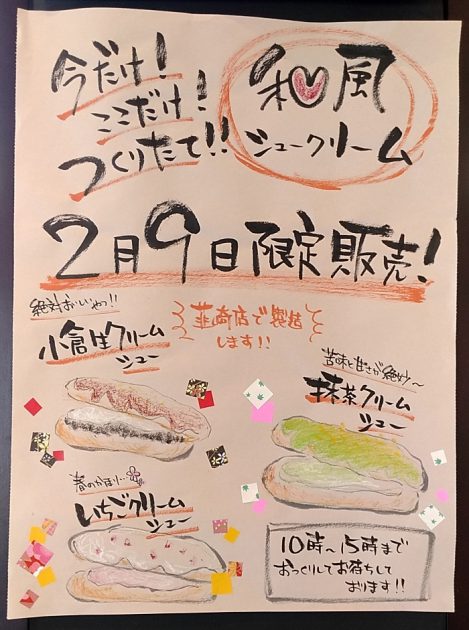 今だけ!
ここだけ!
つくりたて!!
和風
シュークリーム
2月9日限定販売!
絶対おいしいやつ!!
小倉生クリーム
シュー
韮崎店で製造
します!!
苦味と甘さが絶妙～
抹茶クリーム
シュー
春のかほり…
いちごクリーム
シュー
10時～15時まで
おつくりしてお待ちして
おります!!